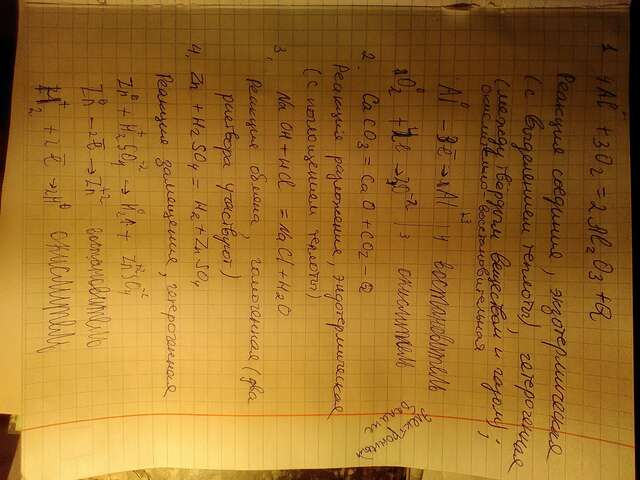 1. 4Al⁰ + 3O₂ = 2Al₂O₃ + Q
Реакция соединия, экзотермическая
(с выделением теплоты) гетерогенная
(между твёрдым веществом и газом);
окислительно восстановительная
Al⁰ - 3ē → Al⁺³ | 4 востановитель
O₂⁰ + ē → O⁻² | 3 окислитель
электронный баланс
2. CaCO₃ = CaO + CO₂ - Q
Реакция разложения, эндотермическая
(с поглощением теплоты)
3. NaOH + HCl = NaCl + H₂O
Реакция обмена, гомогенная (два
раствора участвуют)
4. Zn + H₂SO₄ = H₂ + ZnSO₄
Реакция замещения, гетерогенная
Zn⁰ + H₂⁺SO₄⁻² →
Zn⁰ - 2ē → Zn⁺² востановитель
+ 2ē → 2H⁰ окислитель